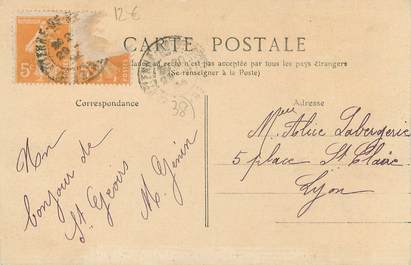 12€
CARTE POSTALE
La Correspondance au recto n'est pas acceptée par tous les pays étrangers
(Se renseigner à la Poste)
Correspondance
Adresse
5
38
Un
bonjour de
St Geoirs
M. Génin
Melle Alice Labergerie
5 place St Clair
Lyon